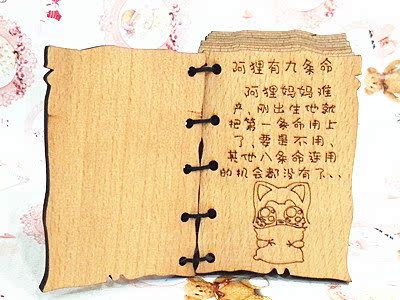 阿狸有九条命
阿狸妈妈难
产、刚出生他就
把第一条命用上
了、要是不用、
其他八条命连用
的机会都没有了、、